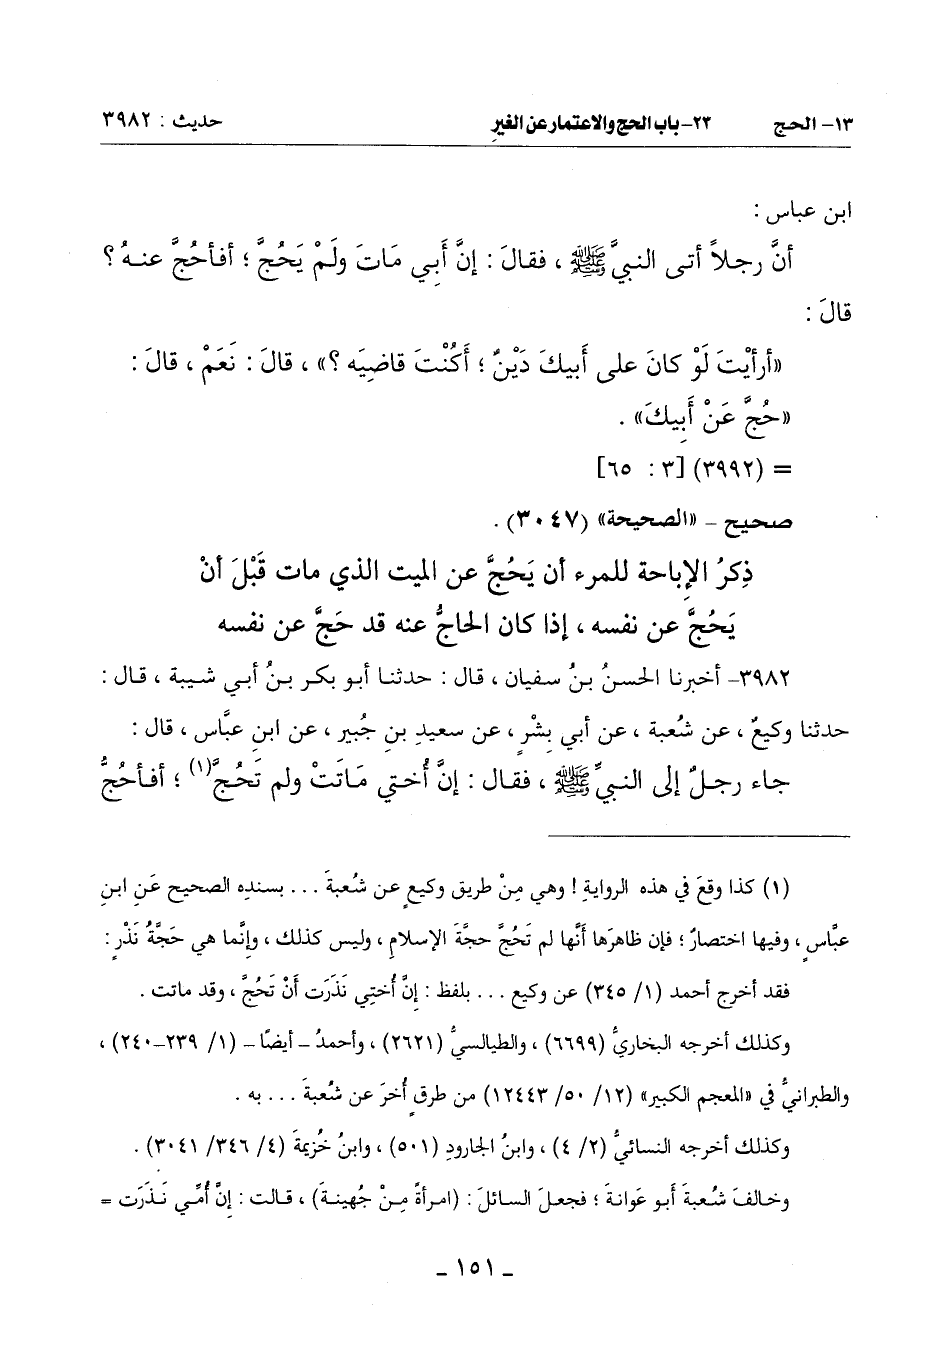 ١٣- الحج ٢٢- باب الحج والاعتمار عن الغير حديث : ٣٩٨٢
ابن عباس :
أنَّ رجلاً أتى النبيَّ ﷺ ، فقالَ : إنَّ أَبي مَاتَ ولَمْ يَحُجَّ ؛ أفأحُجَّ عنهُ ؟
قالَ :
«أرأيْتَ لَوْ كانَ على أَبيكَ دَيْنٌ ؛ أَكُنْتَ قاضِيَه ؟» ، قالَ : نَعَمْ ، قالَ :
«حُجَّ عَنْ أَبيكَ» .
= (٣٩٩٢) [٣ : ٦٥]
صحيح – «الصحيحة» (٣٠٤٧) .
ذِكرُ الإباحة للمرء أن يَحُجَّ عن الميت الذي مات قَبْلَ أنْ
يَحُجَّ عن نفسه ، إذا كان الحاجُّ عنه قد حَجَّ عن نفسه
٣٩٨٢- أخبرنا الحسنُ بنُ سفيان ، قال : حدثنا أبو بكر بنُ أبي شيبة ، قال :
حدثنا وكيعٌ ، عن شُعبة ، عن أبي بِشْرٍ ، عن سعيدِ بنِ جُبير ، عن ابنِ عبَّاس ، قال :
جاء رجلٌ إلى النبيِّ ﷺ ، فقال : إنَّ أُختي مَاتَتْ ولم تَحُجَّ(١) ؛ أفأحُجُّ
(١) كذا وقعَ في هذه الروايةِ ! وهي مِنْ طريق وكيعٍ عن شُعبةَ ... بسندِه الصحيح عَنِ ابنِ
عبَّاسٍ ، وفيها اختصارٌ ؛ فإن ظاهرَها أنَّها لم تَحُجَّ حجَّةَ الإسلامِ ، وليس كذلك ، وإنَّما هي حَجَّةُ نَذْرٍ :
فقد أخرج أحمد (١/ ٣٤٥) عن وكيع ... بلفظ : إنَّ أُختِي نَذَرَت أنْ تَحُجَّ ، وقد ماتت .
وكذلك أخرجه البخاريُّ (٦٦٩٩) ، والطيالسيُّ (٢٦٢١) ، وأحمدُ – أيضًا – (١/ ٢٣٩–٢٤٠) ،
والطبرانيُّ في «المعجم الكبير» (١٢/ ٥٠/ ١٢٤٤٣) من طرقٍ أُخرَ عن شُعبةَ ... به .
وكذلك أخرجه النسائيُّ (٢/ ٤) ، وابنُ الجارودِ (٥٠١) ، وابنُ خُزيمةَ (٤/ ٣٤٦/ ٣٠٤١) .
وخالفَ شُعبةَ أبو عَوانةَ ؛ فجعلَ السائلَ : (امرأةً مِنْ جُهينةَ) ، قالت : إنَّ أُمِّي نَذَرَت =
– ١٥١ –